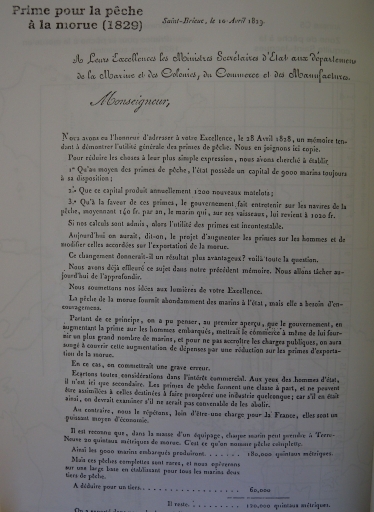 Prime pour la pêche
à la morue (1829)
Saint-Brieuc, le 10 Avril 1829.
A Leurs Excellences les Ministres Secrétaires d'État aux départemens
de la Marine et des Colonies, du Commerce et des Manufactures.
Monseigneur,
Nous avons eu l'honneur d'adresser à votre Excellence, le 28 Avril 1828, un mémoire ten-
dant à démontrer l'utilité générale des primes de pêche. Nous en joignons ici copie.
Pour réduire les choses à leur plus simple expression, nous avons cherché à établir
1.° Qu'au moyen des primes de pêche, l'état possède un capital de 9000 marins toujours
à sa disposition;
2.° Que ce capital produit annuellement 1200 nouveaux matelots;
3.° Qu'à la faveur de ces primes, le gouvernement fait entretenir sur les navires de la
pêche, moyennant 140 fr. par an, le marin qui, sur ses vaisseaux, lui revient à 1020 fr.
Si nos calculs sont admis, alors l'utilité des primes est incontestable.
Aujourd'hui on aurait, dit-on, le projet d'augmenter les primes sur les hommes et de
modifier celles accordées sur l'exportation de la morue.
Ce changement donnerait-il un résultat plus avantageux? voilà toute la question.
Nous avons déjà effleuré ce sujet dans notre précédent mémoire. Nous allons tâcher au-
jourd'hui de l'approfondir.
Nous soumettons nos idées aux lumières de votre Excellence.
La pêche de la morue fournit abondamment des marins à l'état, mais elle a besoin d'en-
couragemens.
Partant de ce principe, on a pu penser, au premier aperçu, que le gouvernement, en
augmentant la prime sur les hommes embarqués, mettrait le commerce à même de lui four-
nir un plus grand nombre de marins, et pour ne pas accroître les charges publiques, on aura
songé à couvrir cette augmentation de dépenses par une réduction sur les primes d'exporta-
tion de la morue.
En ce cas, on commettrait une grave erreur.
Écartons toutes considérations dans l'intérêt commercial. Aux yeux des hommes d'état,
il n'est ici que secondaire. Les primes de pêche forment une classe à part, et ne peuvent
être assimilées à celles destinées à faire prospérer une industrie quelconque; car s'il en était
ainsi, on devrait examiner s'il ne serait pas convenable de les abolir.
Au contraire, nous le répétons, loin d'être une charge pour la France, elles sont un
puissant moyen d'économie.
Il est reconnu que, dans la masse d'un équipage, chaque marin peut prendre à Terre-
Neuve 20 quintaux métriques de morue. C'est ce qu'on nomme pêche complète.
Ainsi les 9000 marins embarqués produiront. . . . . . . 180,000 quintaux métriques.
Mais ces pêches complètes sont rares, et nous opérerons
sur une large base en établissant pour tous les marins deux
tiers de pêche.
A déduire pour un tiers. . . . . . . . . . . 60,000
Il reste. . . . . . . . . 120,000 quintaux métriques.